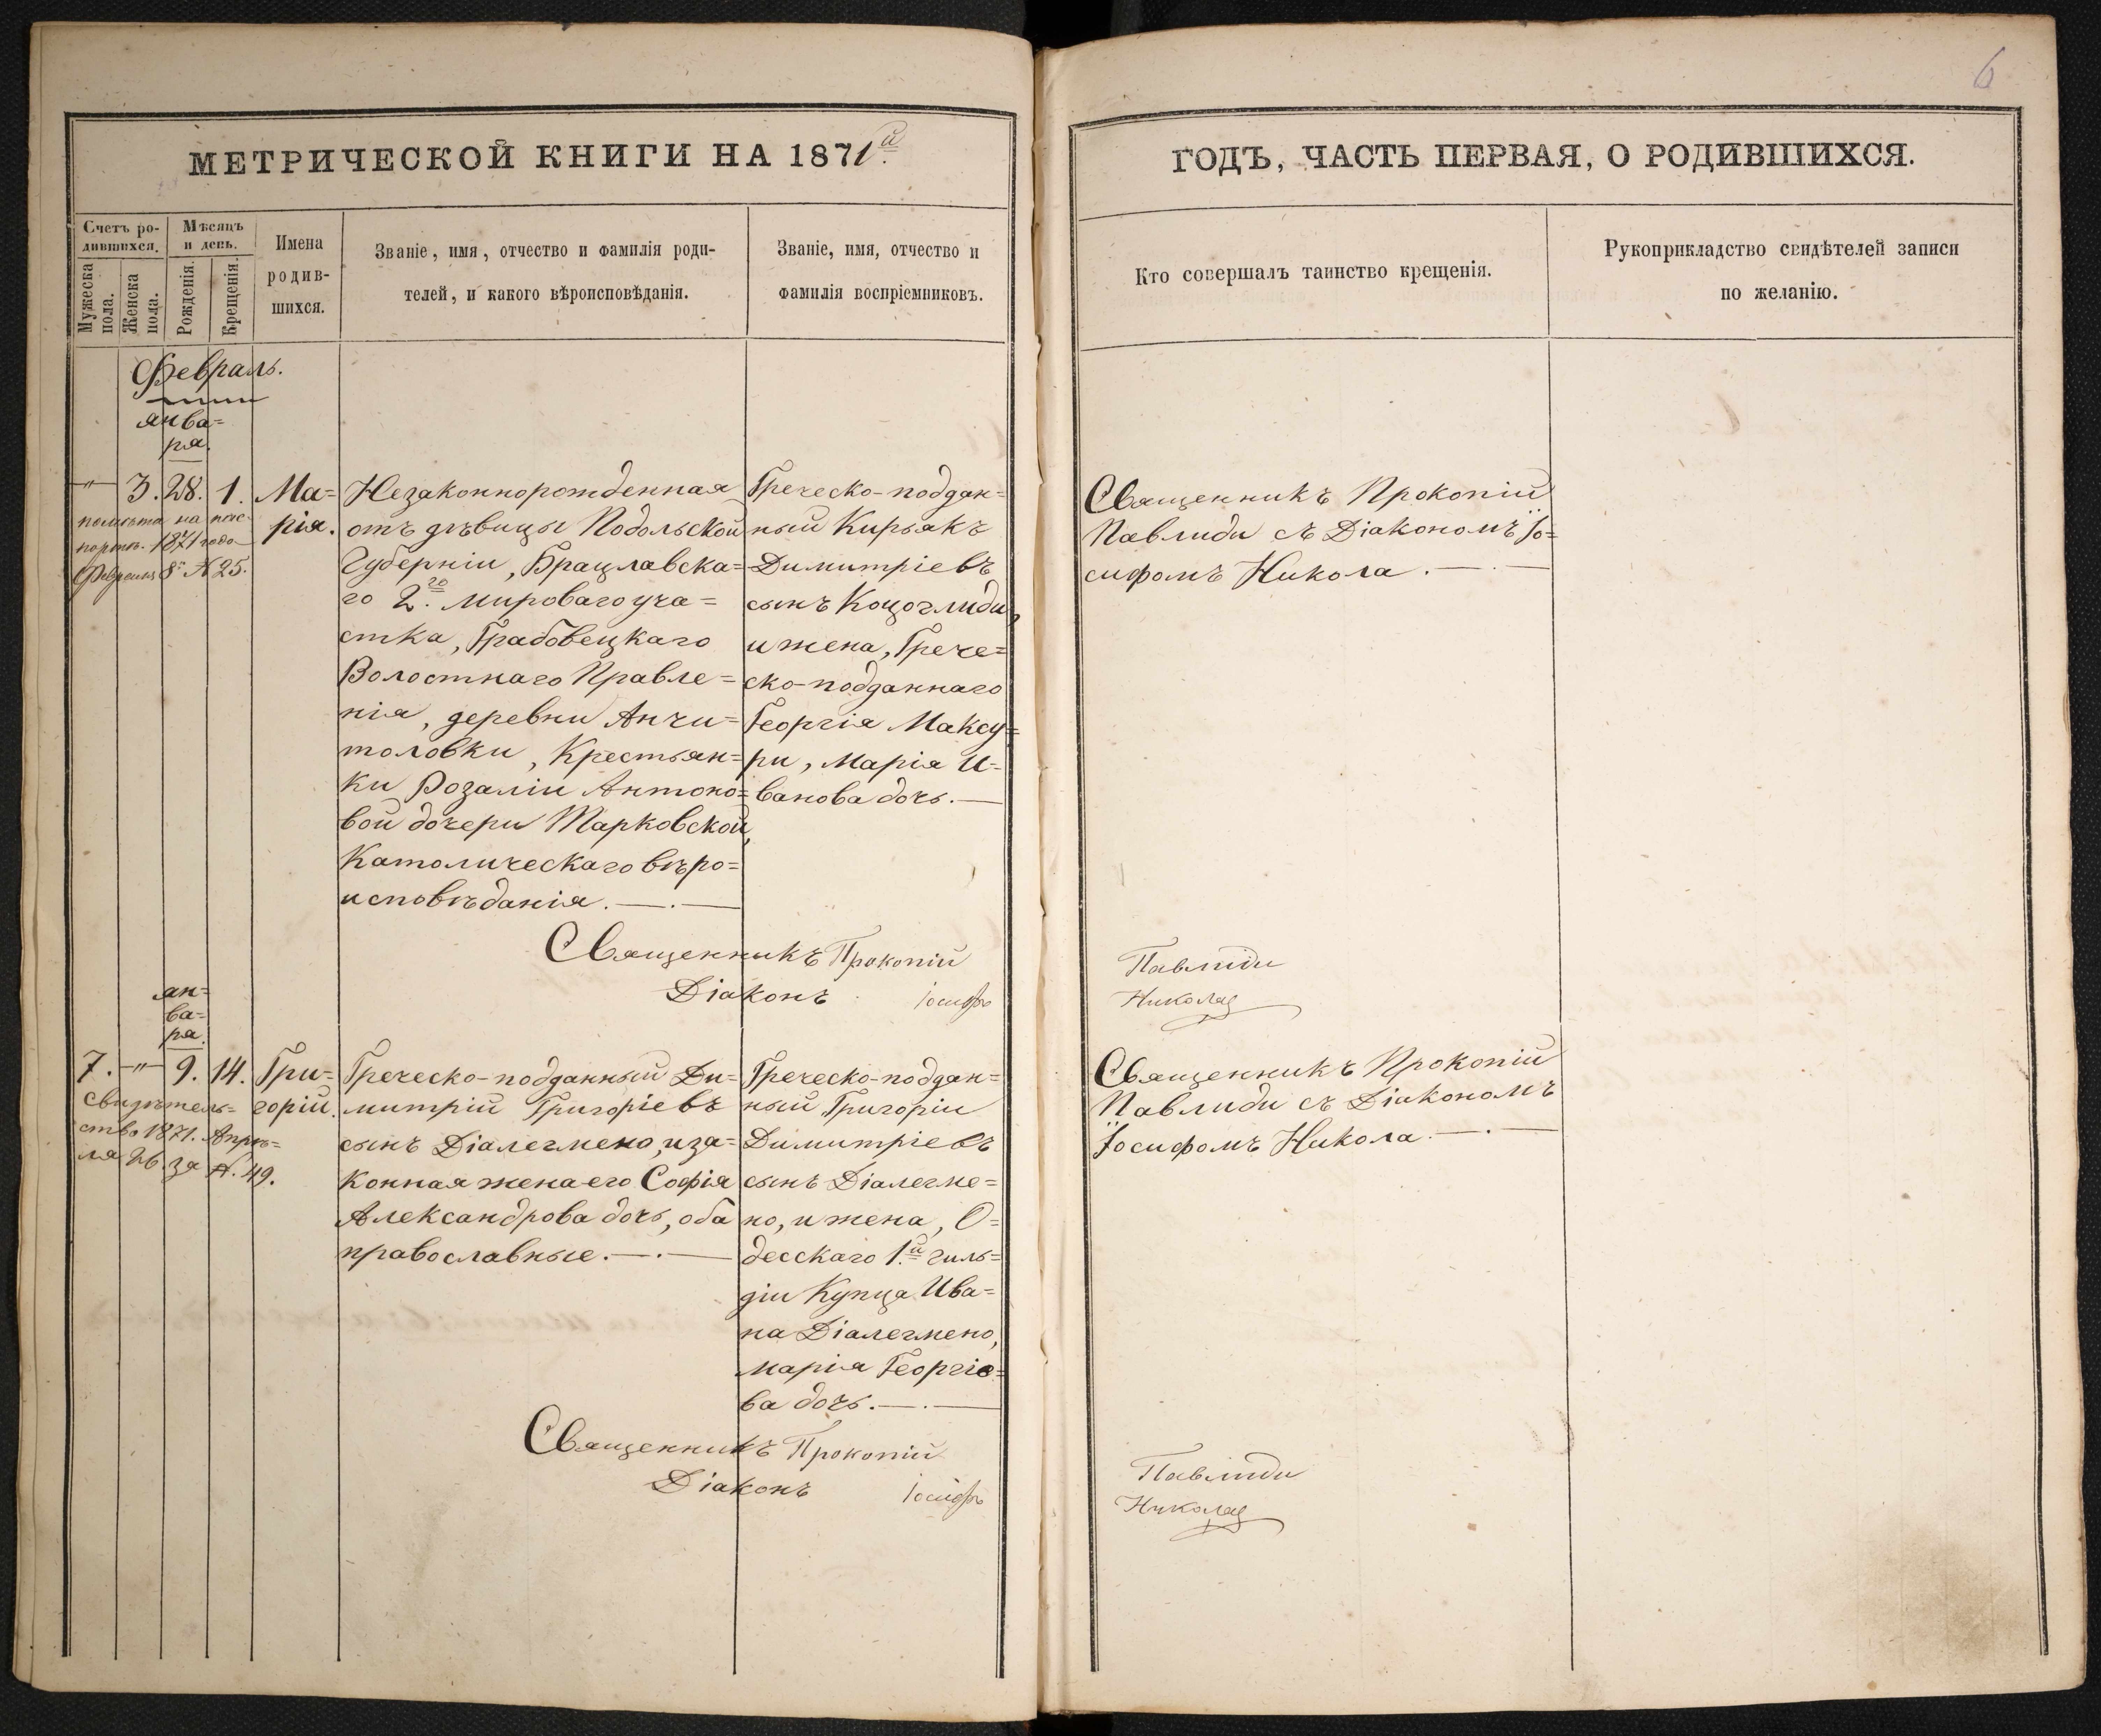 6
МЕТРИЧЕСКОЙ КНИГИ НА 1871й
ГОДЪ, ЧАСТЬ ПЕРВАЯ, О РОДИВШИХСЯ.
Счетъ ро-
дившихся.
Мужеска
пола.
Женска
пола.
Мѣсяцъ
и день.
Рожденія.
Крещенія.
Имена
родив-
шихся.
Званіе, имя, отчество и фамилія роди-
телей, и какого вѣроисповѣданія.
Званіе, имя, отчество и
фамилія воспріемниковъ.
Кто совершалъ таинство крещенія.
Рукоприкладство свидѣтелей записи
по желанію.
Февраль.
янва=
ря
—"— 3. 28. 1.
помѣта на пас-
портѣ. 1871 года
Февраля 8го N 25.
Ма=
рія.
Незаконнорожденная
отъ дѣвицы Подольской
Губерніи, Брацлавска=
го 2го мироваго уча=
стка, Грабовецкаго
Волостнаго Правле=
нія, деревни Анчи=
толовки, Крестьян=
ки Розаліи Антоно=
вой дочери Марковской,
Католическаго вѣро=
исповѣданія.—.—
Греческо-поддан=
ный Кирьякъ
Димитріевъ
сынъ Коцоглиди,
и жена, Грече=
ско-подданнаго
Георгія Максу=
ри, Марія И=
ванова дочь.—
Священникъ Прокопій
Павлиди съ Діакономъ Іо=
сифомъ Никола.—.—
Священникъ Прокопій Павлиди
Діаконъ Іосифъ Николад
ян=
ва=
ря.
7. —"— 9. 14.
свидѣтель=
ство 1871. Апрѣ=
ля 26. за N. 49.
Гри=
горій.
Греческо-подданный Ди=
митрій Григоріевъ
сынъ Діалегмено, и за=
конная жена его Софія
Александрова дочь, оба
православные.—.—
Греческо-поддан=
ный Григоріи
Димитріевъ
сынъ Діалегме=
но, и жена, О=
десскаго 1.й гиль=
діи Купца Ива=
на Діалегмено,
Марія Георгіе=
ва дочь.—.—
Священникъ Прокопій
Павлиди съ Діакономъ
Іосифомъ Никола.—.—
Священникъ Прокопій Павлиди
Діаконъ Іосифъ Николад